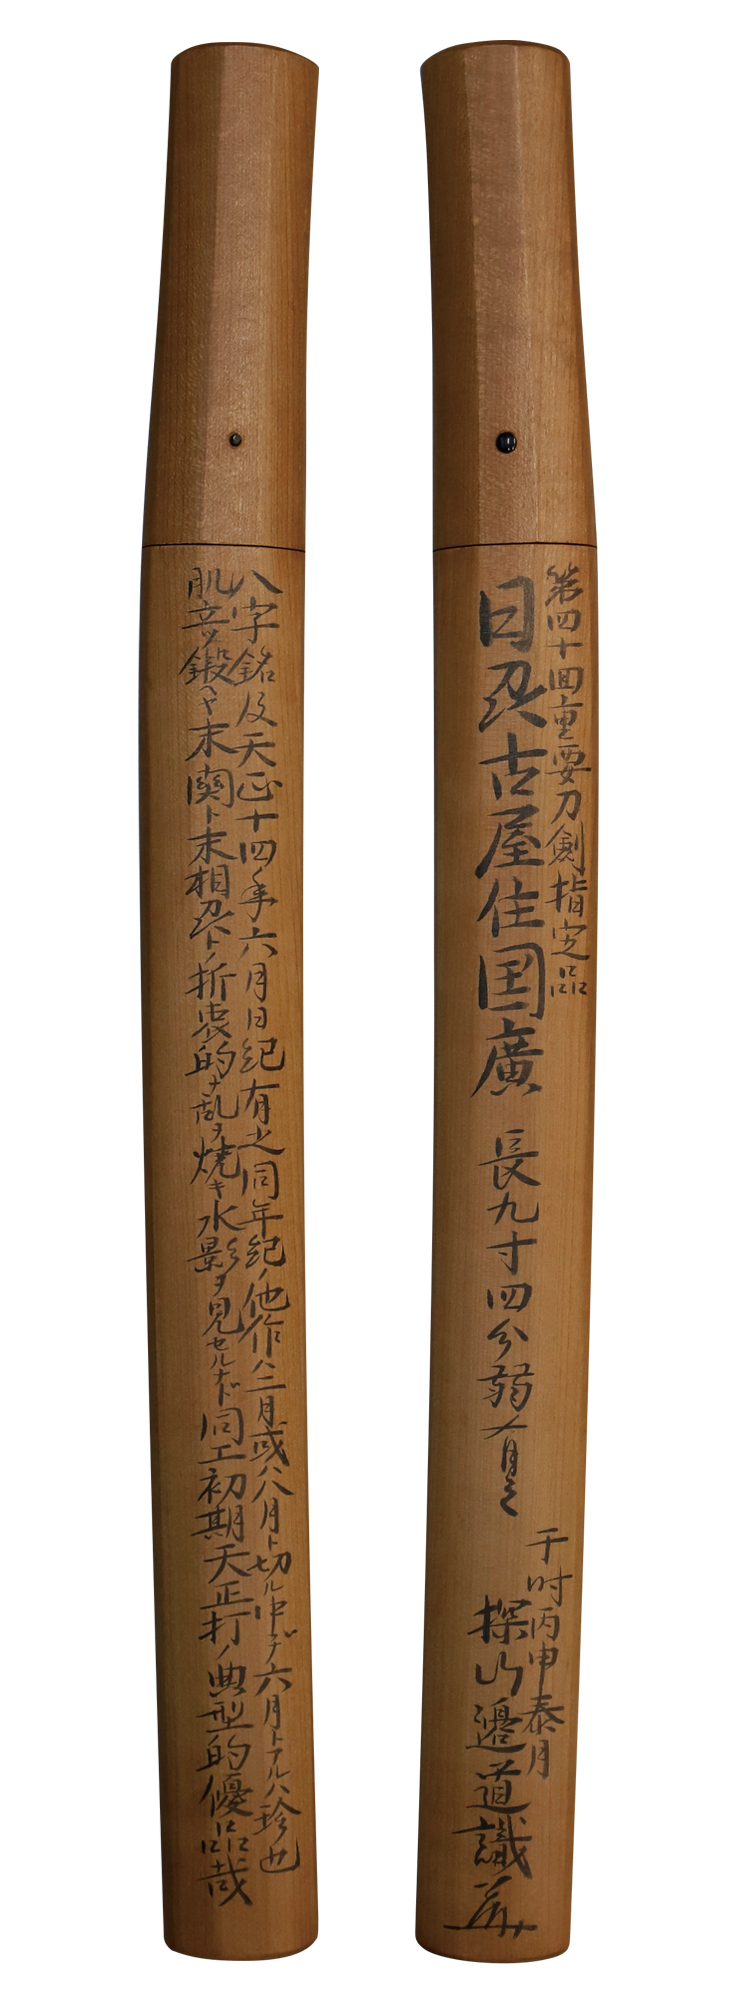 第四十回重要刀劍指定品
日州古屋住国廣
長九寸四分弱有之
于時丙申泰月
探山邉道識
八字銘及天正十四年六月日紀有之同年紀ノ他作ハ二月或ハ八月ト切ル中デ六月トアルハ珍也
肌立ツ鍛ヘヤ末関ト末相州トノ折衷的ナ乱ヲ焼キ水影ヲ見セルナド同工初期天正打ノ典型的優品哉